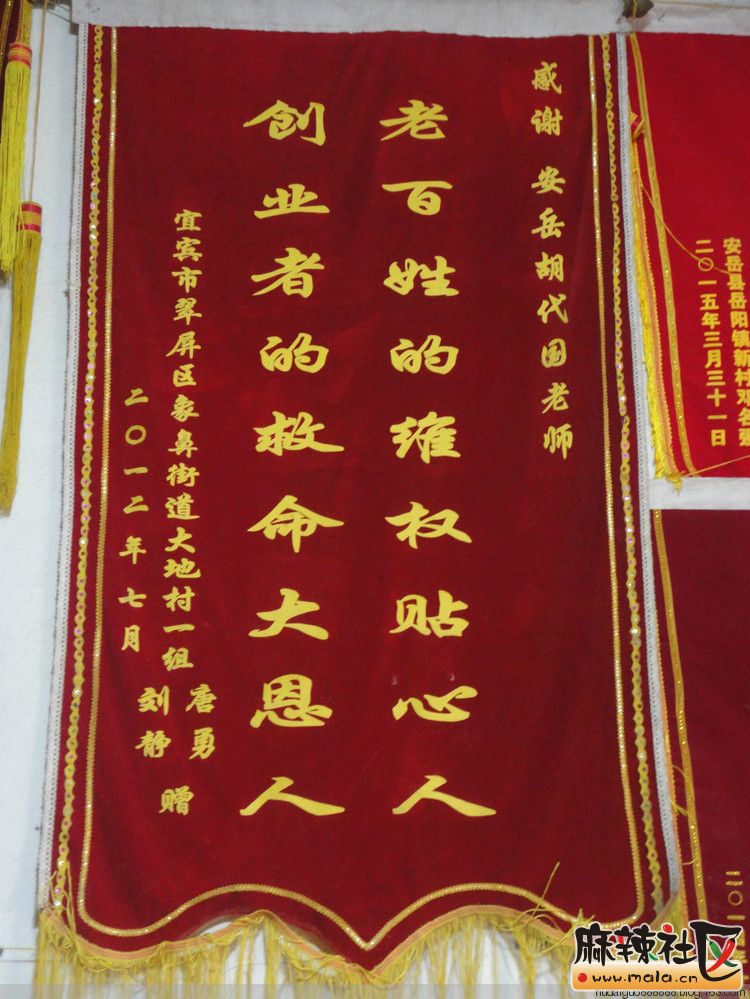 感谢 安岳胡代国老师
老百姓的维权贴心人
创业者的救命大恩人
宜宾市翠屏区象鼻街道大地村一组
唐勇
刘静
赠
二〇一二年七月
安岳县岳阳镇新村邓名强
二〇一五年三月三十一日
二〇一
麻辣社区
www.mala.cn
hudaiguo888888.blog.163.com